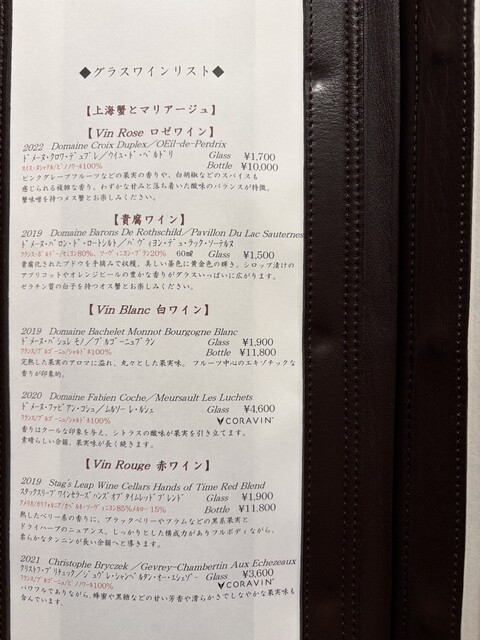 ◆グラスワインリスト◆
【上海蟹とマリアージュ】
【Vin Rose ロゼワイン】
2022 Domaine Croix Duplex／OEil-de-Perdrix
ドメーヌ・クロワ・デュプレ／ウイユ・ド・ペルドリ Glass ¥1,700
スイス・ヌシャテル/ピノノワール100% Bottle ¥10,000
ピンクグレープフルーツなどの果実の香りや、白胡椒などのスパイスも
感じられる複雑な香り。わずかな甘みと落ち着いた酸味のバランスが特徴。
蟹味噌を持つメス蟹とお楽しみください。
【貴腐ワイン】
2019 Domaine Barons De Rothschild／Pavillon Du Lac Sauternes
ドメーヌ・バロン・ド・ロートシルト／パヴィヨン・デュ・ラック・ソーテルヌ
フランス・ボルドー/セミヨン80%、ソーヴィニヨン・ブラン20% 60ml Glass ¥1,500
貴腐化されたブドウを手摘みで収穫。美しい茶色に黄金色の輝き。シロップ漬けの
アプリコットやオレンジピールの豊かな香りがグラスいっぱいに広がります。
ゼラチン質の白子を持つオス蟹とお楽しみください。
【Vin Blanc 白ワイン】
2019 Domaine Bachelet Monnot Bourgogne Blanc
ドメーヌ・バシュレ モノ／ブルゴーニュブラン Glass ¥1,900
フランス/ブルゴーニュ/シャルドネ100% Bottle ¥11,800
完熟した果実のアロマに溢れ、丸々とした果実味。フルーツ中心のエキゾチックな
香りが印象的。
2020 Domaine Fabien Coche／Meursault Les Luchets
ドメーヌ・ファビアン・コシュ／ムルソー レ・ルシェ Glass ¥4,600
フランス/ブルゴーニュ/シャルドネ100% CORAVIN™
香りはクールな印象を与え、シトラスの酸味が果実を引き立てます。
素晴らしい余韻、果実味が長く続きます。
【Vin Rouge 赤ワイン】
2019 Stag's Leap Wine Cellars Hands of Time Red Blend
スタッグスリープ ワインセラーズ ハンズ オブ タイム レッド ブレンド Glass ¥1,900
アメリカ/カリフォルニア/カベルネ・ソーヴィニヨン85%メルロー 15% Bottle ¥11,800
熟したベリー系の香りに、ブラックベリーやプラムなどの黒系果実と
ドライハーブのニュアンス。しっかりとした構成力がありフルボディながら、
柔らかなタンニンが長い余韻へと導きます。
2021 Christophe Bryczek ／Gevrey-Chambertin Aux Echezeaux
クリストフ・ブリチェック／ジュヴレ・シャンベルタン・オー・エシェゾー Glass ¥3,600
フランス/ブルゴーニュ/ピノノワール100% CORAVIN™
パワフルでありながら、蜂蜜や黒糖などの甘い芳香や滑らかさでしなやかな果実味も
含んでいます。